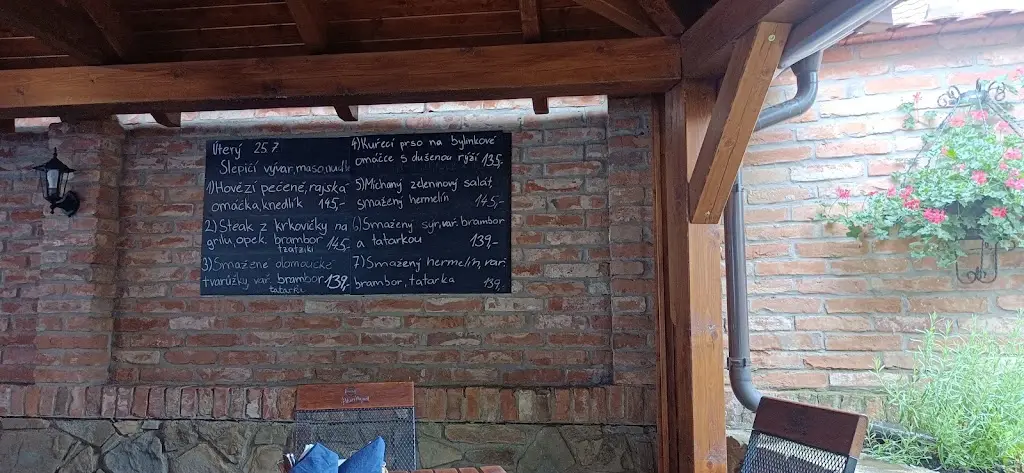 Úterý 25.7
Slepičí vývar, maso, nudle
1) Hovězí pečené, rajská
omáčka, knedlík 145,-
2) Steak z krkovičky na
grilu, opek. brambor 145,-
tzatziki
3) Smažené olomoucké
tvarůžky, vař. brambor 139,-
tatarka
4) Kuřecí prso na bylinkové
omáčce s dušenou rýží 135,-
5) Míchaný zeleninový salát,
smažený hermelín 145,-
6) Smažený sýr, vař. brambor
a tatarkou 139,-
7) Smažený hermelín, vař.
brambor, tatarka 139,-